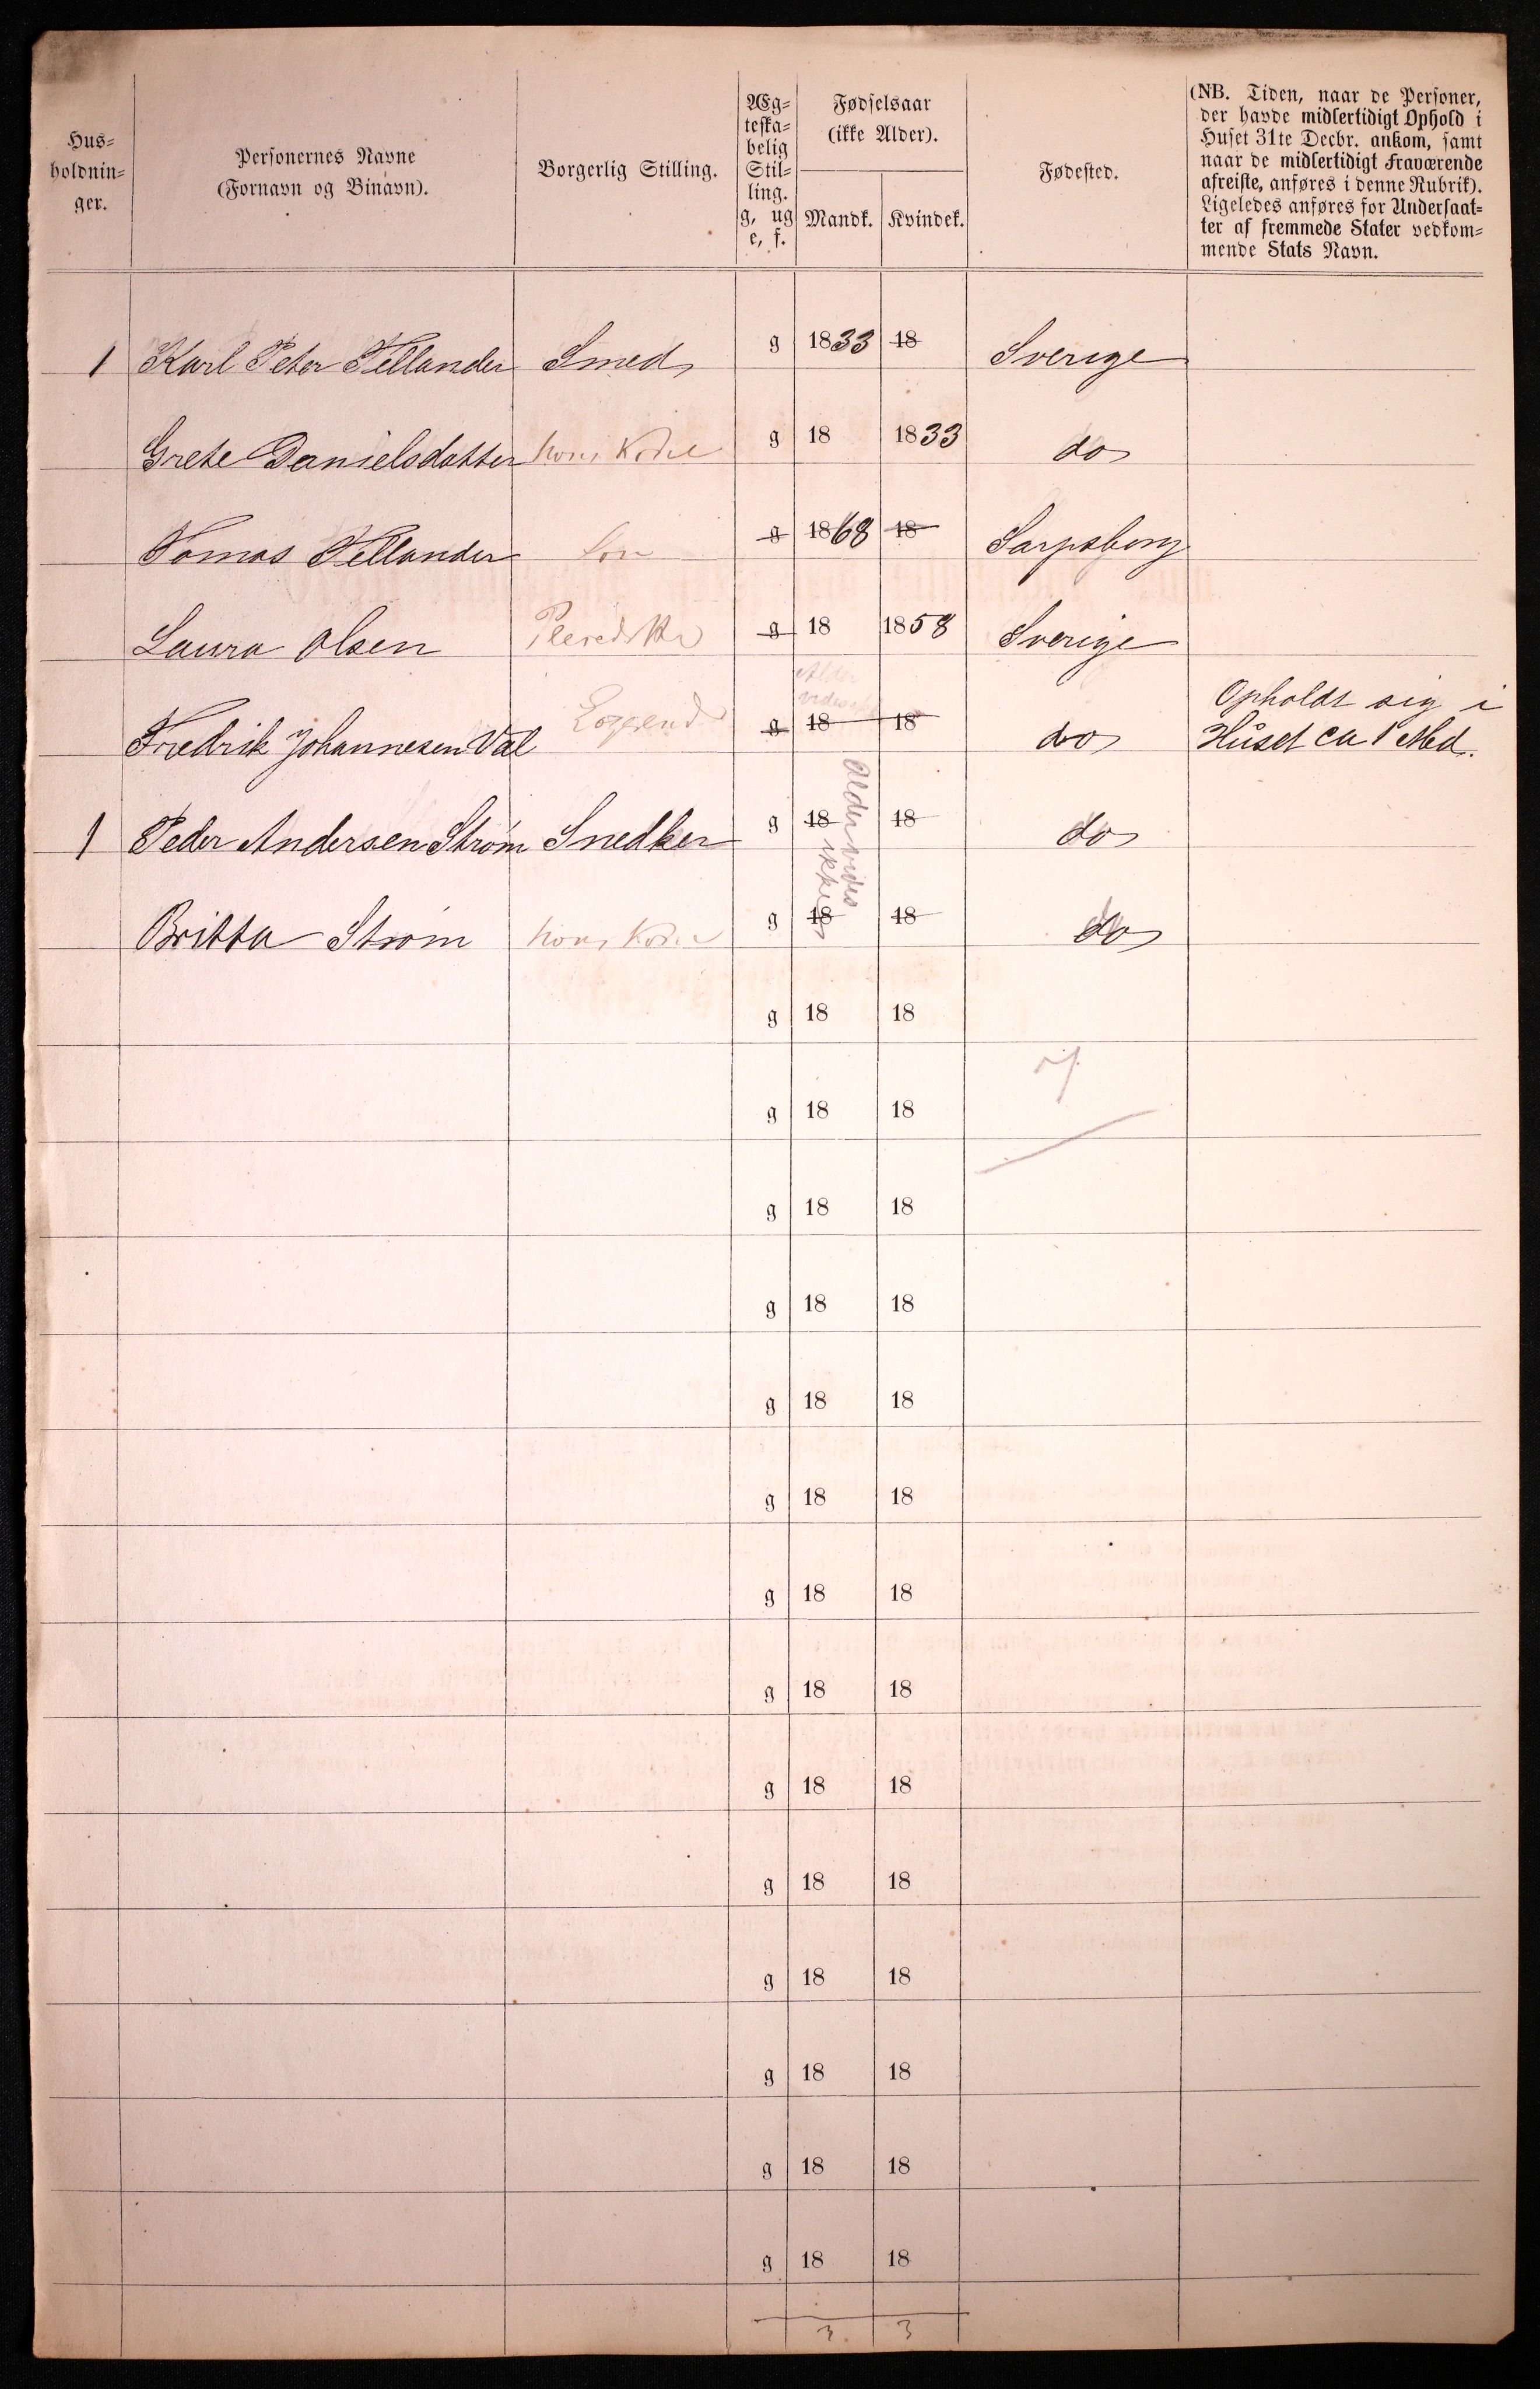 Hus-
holdnin-
ger.
Personernes Navne
(Fornavn og Binavn).
Borgerlig Stilling.
Æg-
teska-
belig
Stil-
ling.
g, ug
e, f.
Fødselsaar
(ikke Alder).
Mandk. Kvindek.
Fødested.
(NB. Tiden, naar de Personer,
der havde midlertidigt Ophold i
Huset 31te Decbr. ankom, samt
naar de midlertidigt Fraværende
afreiste, anføres i denne Rubrik).
Ligeledes anføres for Undersaat-
ter af fremmede Stater vedkom-
mende Stats Navn.
1 Karl Peter Tellander Smed g 1833 18 Sverige
Grete Danielsdatter hans Kone g 18 1833 do
Tomas Tellander Søn g 1868 18 Sarpsborg
Laura Olsen Pleiedatter g 18 1858 Sverige
Alder
Fredrik Johannesen Val Logerende g 18 18 do Opholdt sig i
Huset ca 1 Md.
1 Peder Andersen Strøm Snedker g 18 18 do
Alder vides
ikke
Britta Strøm hans Kone g 18 18 do
g 18 18
7
g 18 18
g 18 18
g 18 18
g 18 18
g 18 18
g 18 18
g 18 18
g 18 18
g 18 18
g 18 18
g 18 18
g 18 18
g 18 18
3. 3